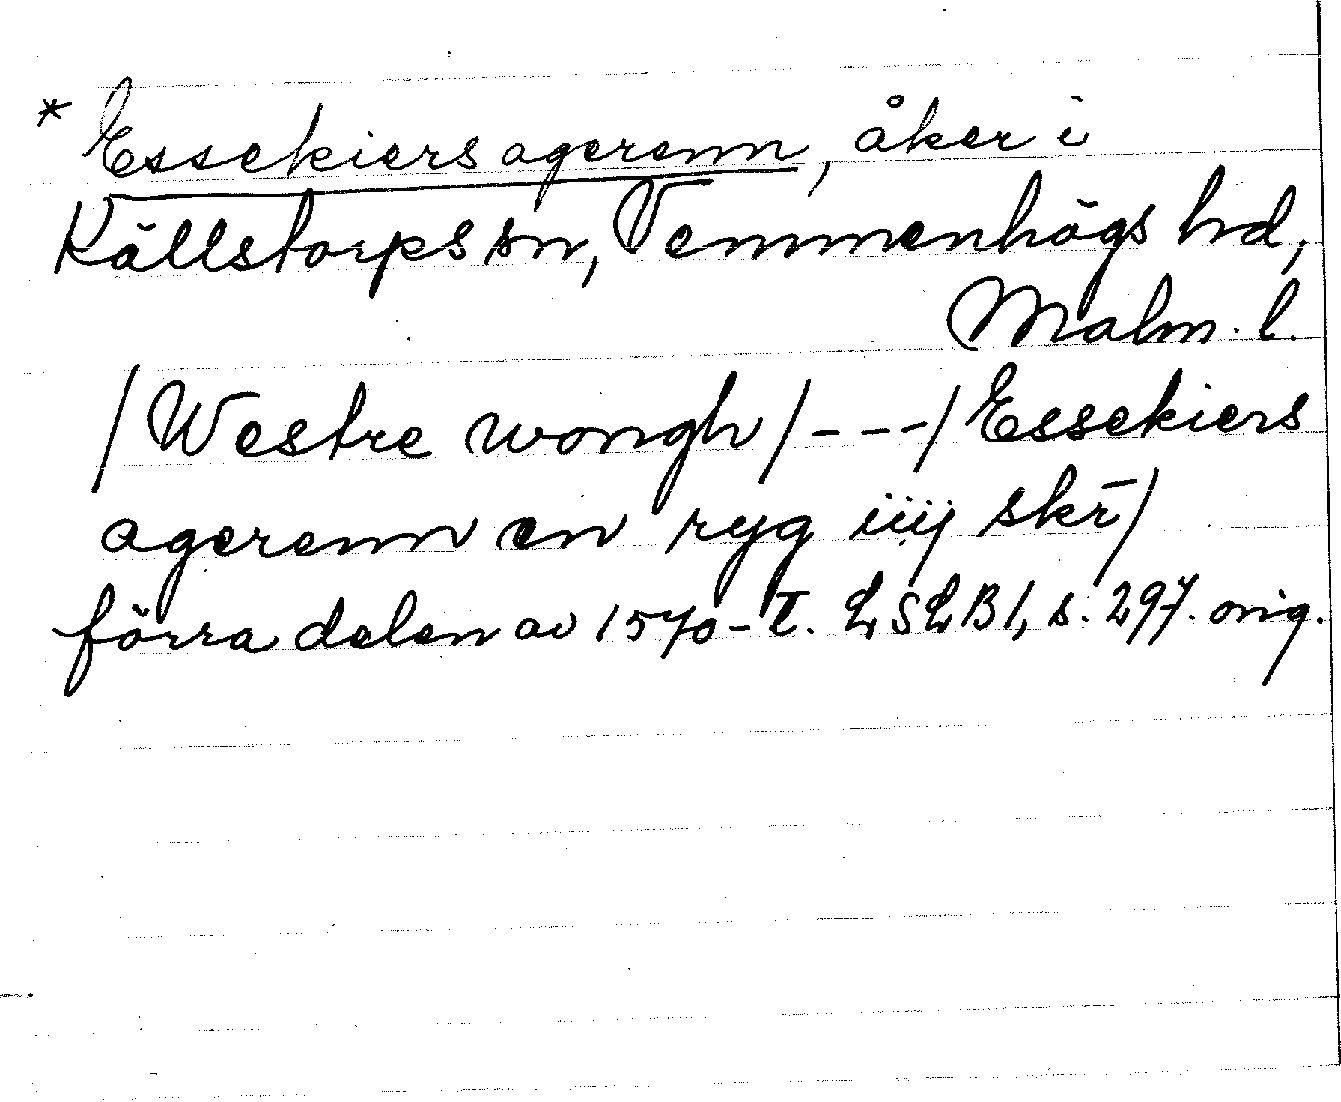 * Essekiers agerenn, åker i
Källstorps sn, Vemmenhögs hd,
Malm. l.
/Westre wongh/ - - -/ Essekiers
agerenn en ryg iiij skr̄/
förra delen av 1570-t. LSLB1, s. 297. orig.